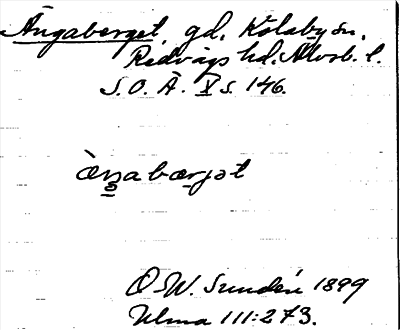 Ängaberget, gd. Kölaby sn.
Redvägs hd. Älvsb. l.
S.O.Ä. X s. 146.
æ̀ŋabærjət
O.W. Sundén 1899
Ulma 111:273.